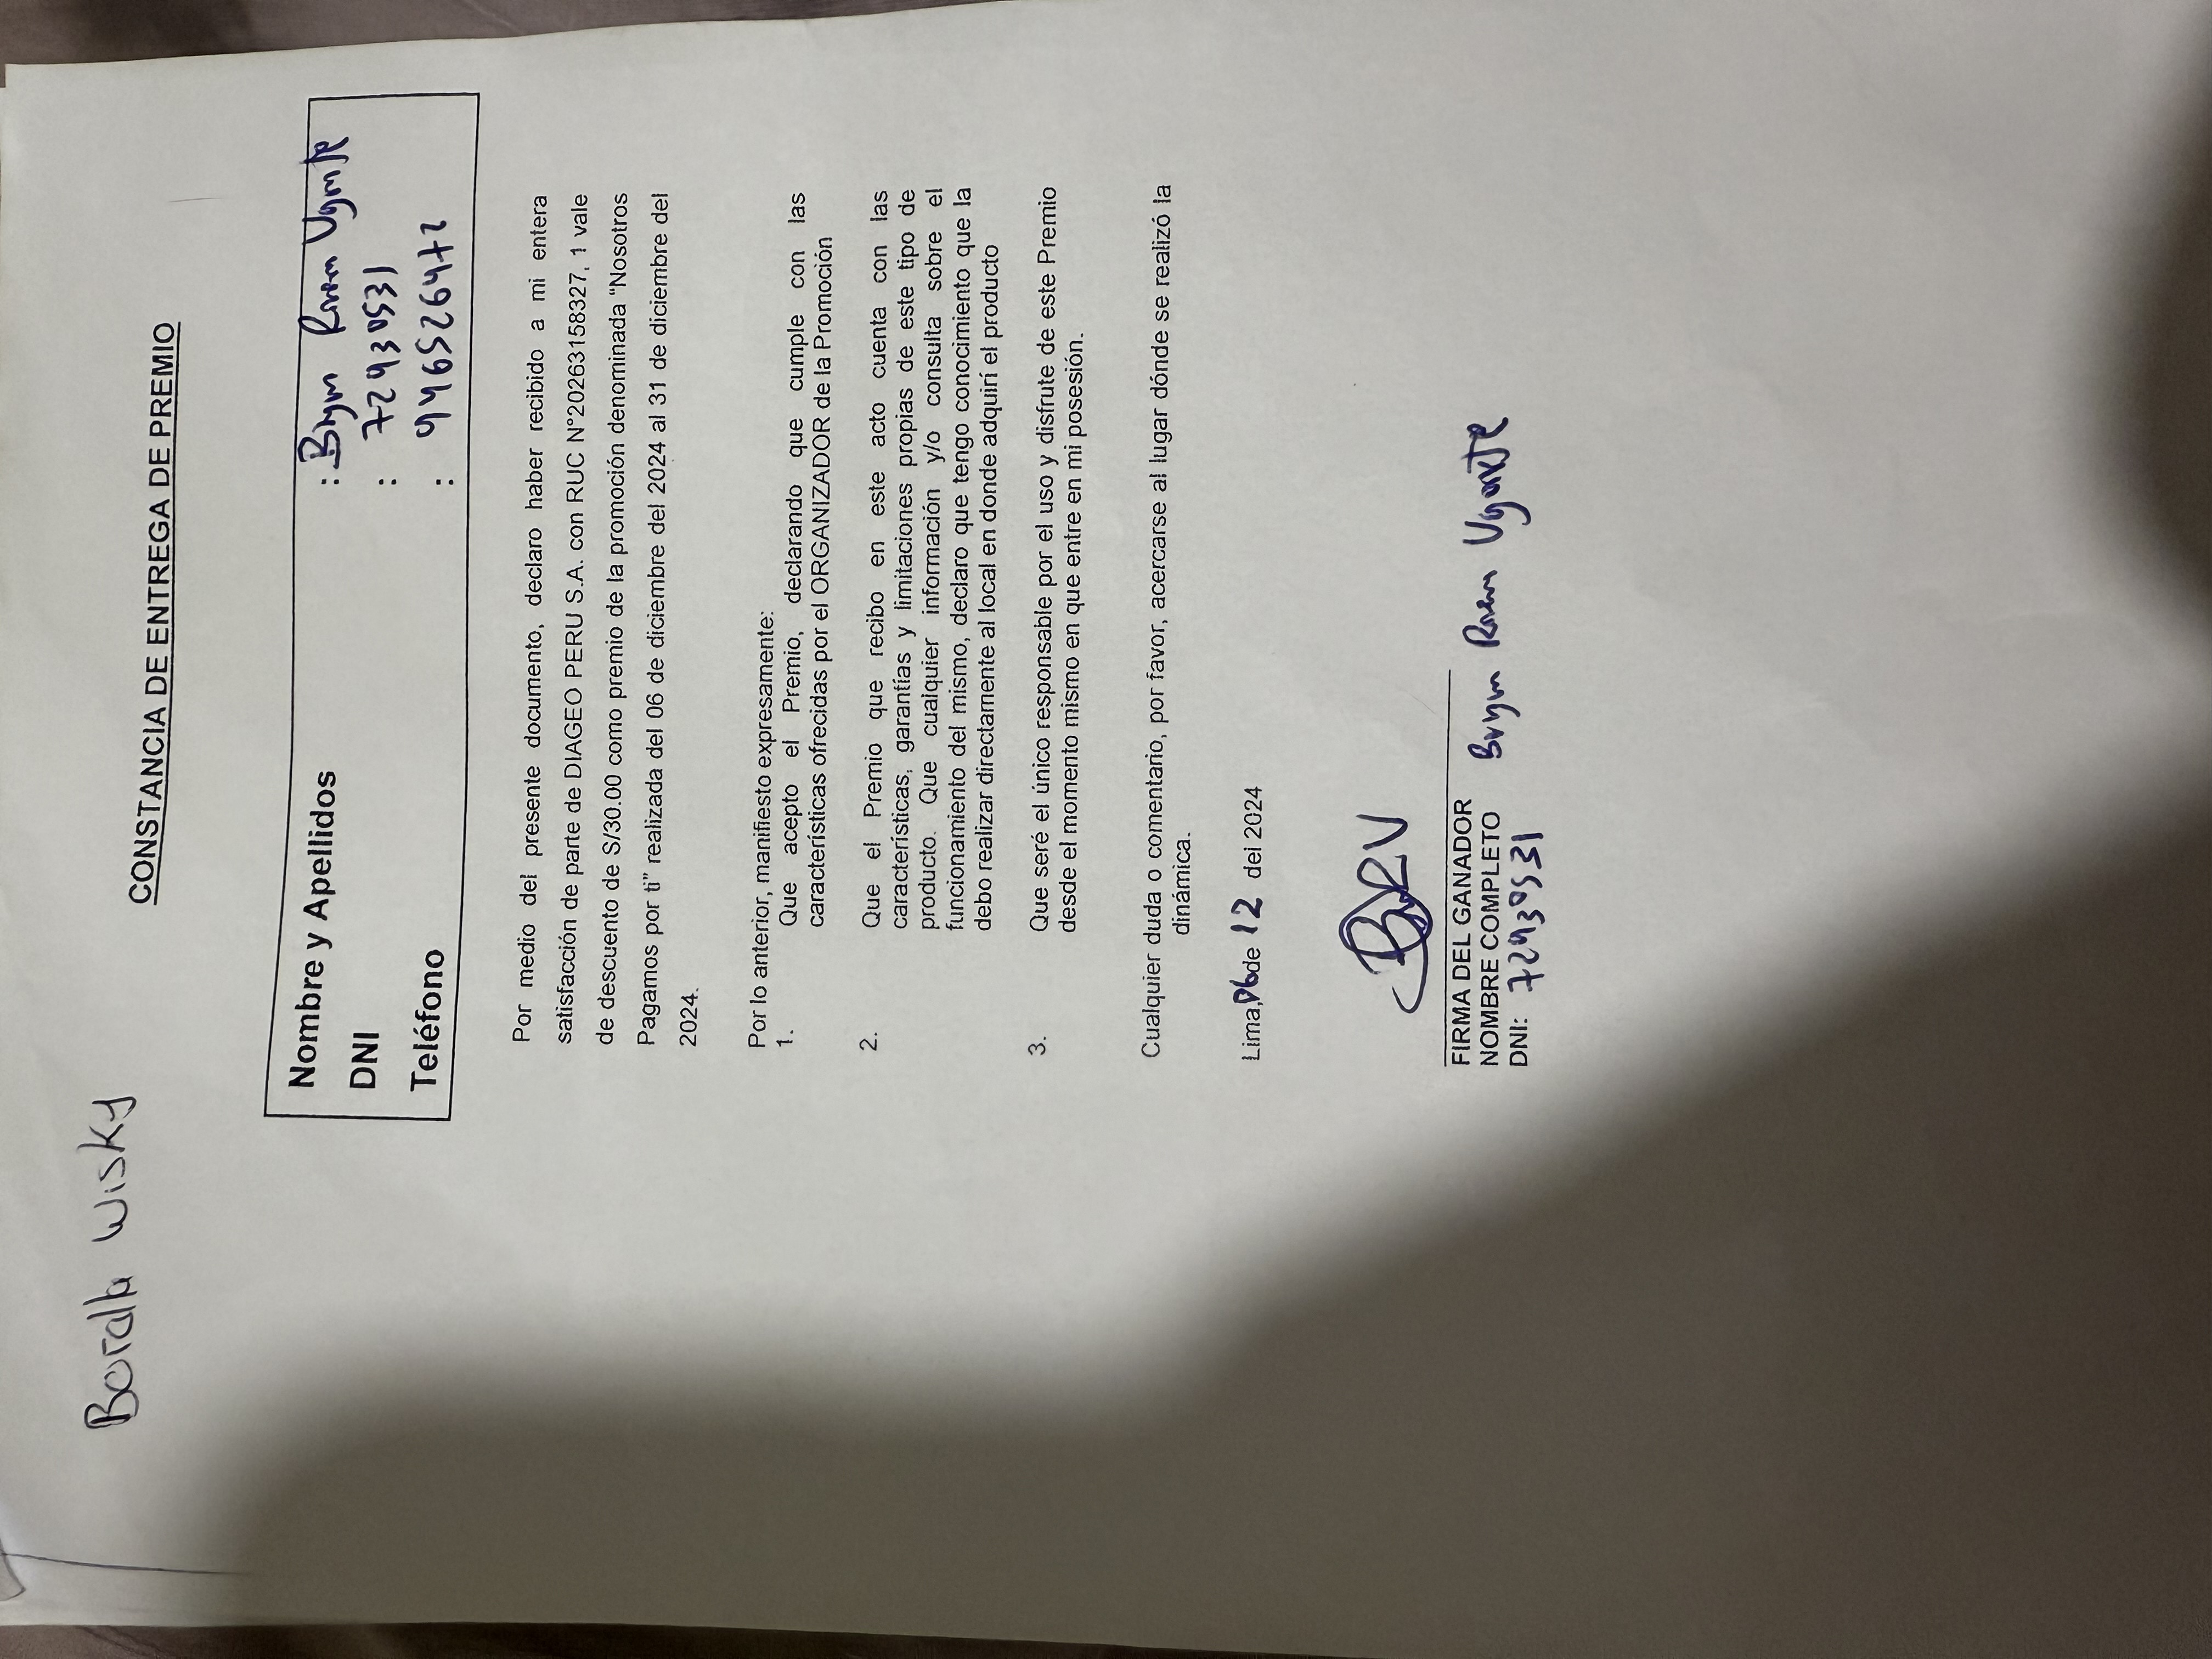 Wisky
CONSTANCIA DE ENTREGA DE PREMIO
Nombre y Apellidos : Ugarte
DNI : 72930531
Teléfono : 946526472
Por medio del presente documento, declaro haber recibido a mi entera
satisfacción de parte de DIAGEO PERU S.A. con RUC N°20263158327, 1 vale
de descuento de S/30.00 como premio de la promoción denominada “Nosotros
Pagamos por ti” realizada del 06 de diciembre del 2024 al 31 de diciembre del
2024.
Por lo anterior, manifiesto expresamente:
1. Que acepto el Premio, declarando que cumple con las
características ofrecidas por el ORGANIZADOR de la Promoción
2. Que el Premio que recibo en este acto cuenta con las
características, garantías y limitaciones propias de este tipo de
producto. Que cualquier información y/o consulta sobre el
funcionamiento del mismo, declaro que tengo conocimiento que la
debo realizar directamente al local en donde adquirí el producto
3. Que seré el único responsable por el uso y disfrute de este Premio
desde el momento mismo en que entre en mi posesión.
Cualquier duda o comentario, por favor, acercarse al lugar dónde se realizó la
dinámica.
Lima, 06 de 12 del 2024
FIRMA DEL GANADOR
NOMBRE COMPLETO Ugarte
DNI: 72930531